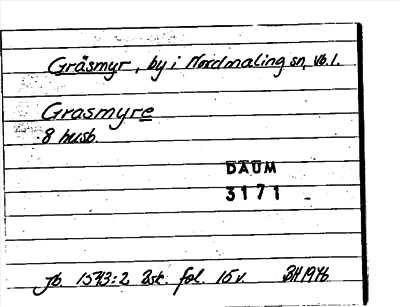 Gräsmyr, by i Nordmaling sn, Vb. l.
Grasmyre
8 husb.
DAUM
3171
Jb. 1543:2 Bst. fol. 15 v. BH 1976